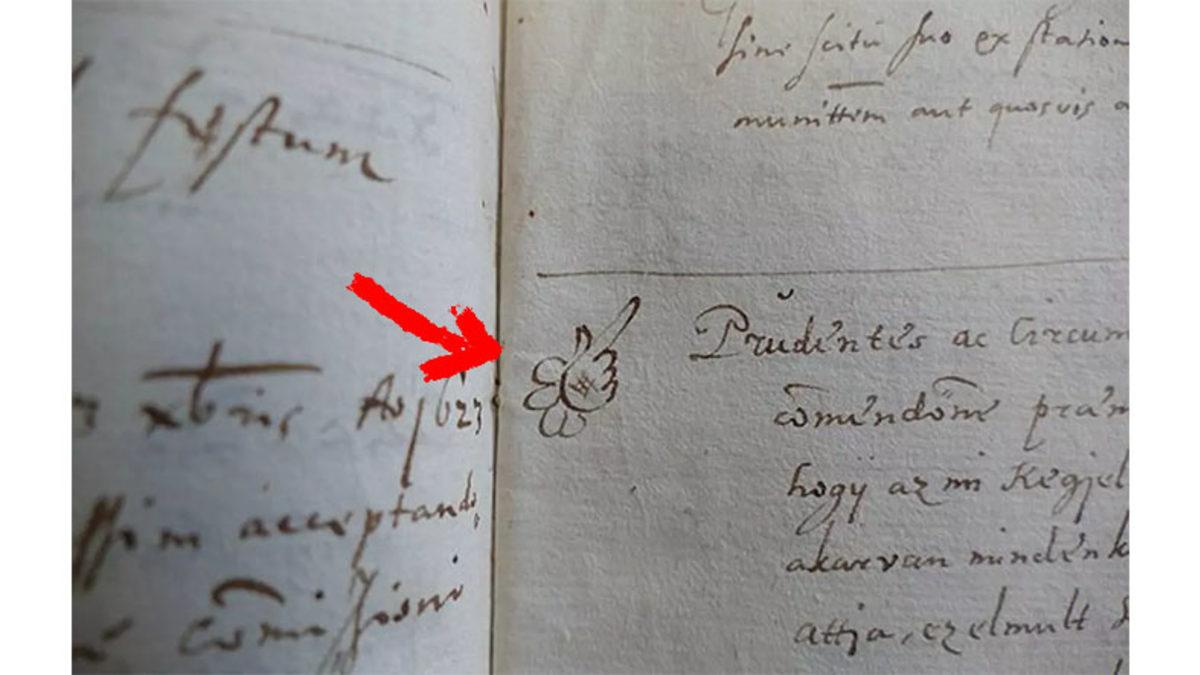 festum
xbris Ao 1623
ssim acceptando,
comissioni
sini scitu suo ex station
munittem aut quosvis a
Prudentes ac Circum
comendom̄e prǽm
hogy az mi Kegjel
akarvan mindenk
attja, ez elmult